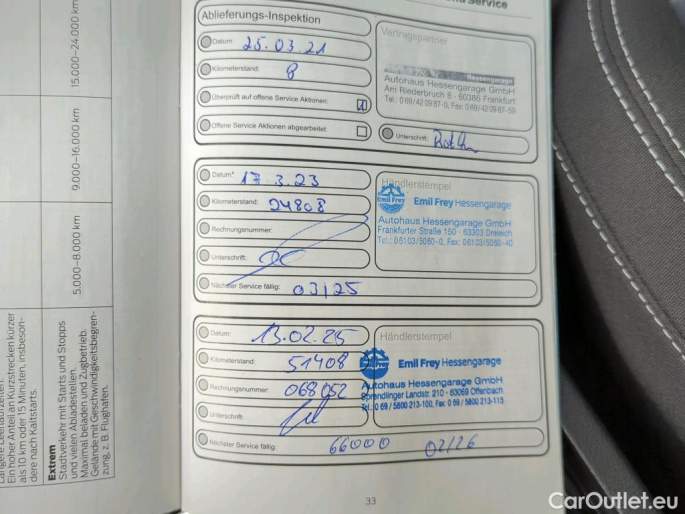 Service
Ablieferungs-Inspektion
Datum: 25.03.21
Kilometerstand: 8
Überprüft auf offene Service Aktionen:
Offene Service Aktionen abgearbeitet:
Vertragspartner
Hessengarage
Autohaus Hessengarage GmbH
Am Riederbruch 6 - 60386 Frankfurt
Unterschrift:
Datum* 17.3.23
Kilometerstand: 24808
Rechnungsnummer:
Unterschrift:
Nächster Service fällig: 03/25
Händlerstempel
Emil Frey Emil Frey Hessengarage
Autohaus Hessengarage GmbH
Frankfurter Straße 150 - 63303 Dreieich
Tel.: 06103/5060-0, Fax: 06103/5060-40
Datum: 13.02.25
Kilometerstand: 51408
Rechnungsnummer: 068052
Unterschrift:
Nächster Service fällig: 66000 02/26
Händlerstempel
Emil Frey Hessengarage
Autohaus Hessengarage GmbH
Sprendlinger Landstr. 210 - 63069 Offenbach
Tel.: 0 69 / 5800 213-100, Fax 0 69 / 5800 213-113
33
5.000–8.000 km
9.000–16.000 km
15.000–24.000 km
Ein hoher Anteil an Kurzstrecken kürzer
als 10 km oder 15 Minuten, insbeson-
dere nach Kaltstarts.
Extrem
Stadtverkehr mit Starts und Stopps
und vielen Abladestellen.
Maximal beladen und Zugbetrieb.
Gelände mit Geschwindigkeitsbegren-
zung, z. B. Flughäfen.
CarOutlet.eu